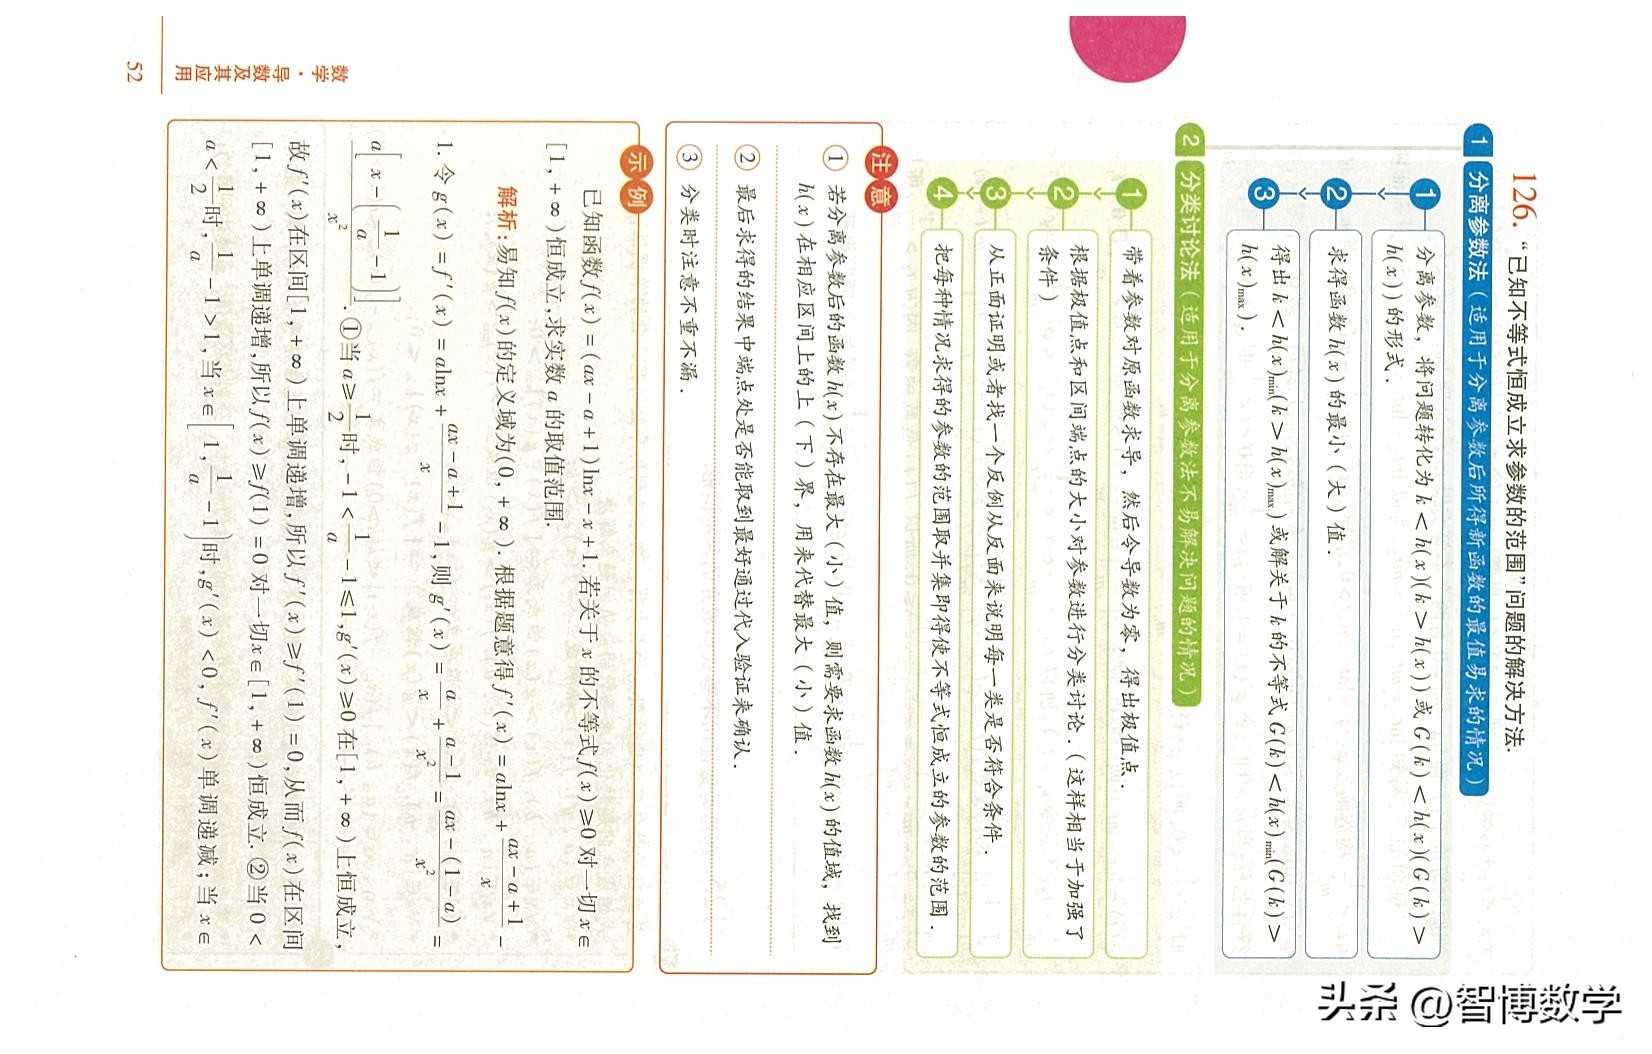 126. “已知不等式恒成立求参数的范围”问题的解决方法.
1 分离参数法（适用于分离参数后所得新函数的最值易求的情况）
1 分离参数，将问题转化为 k＜h(x)(k＞h(x))或 G(k)＜h(x)(G(k)＞
h(x))的形式．
2 求得函数 h(x)的最小（大）值．
3 得出 k＜h(x)min(k＞h(x)max)或解关于 k 的不等式 G(k)＜h(x)min(G(k)＞
h(x)max)．
2 分类讨论法（适用于分离参数法不易解决问题的情况）
1 带着参数对原函数求导，然后令导数为零，得出极值点．
2 根据极值点和区间端点的大小对参数进行分类讨论．（这样相当于加强了
条件）
3 从正面证明或者找一个反例从反面来说明每一类是否符合条件．
4 把每种情况求得的参数的范围取并集即得使不等式恒成立的参数的范围．
注意
① 若分离参数后的函数 h(x)不存在最大（小）值，则需要求函数 h(x)的值域，找到
h(x)在相应区间上的上（下）界，用来代替最大（小）值．
② 最后求得的结果中端点处是否能取到最好通过代入验证来确认．
③ 分类时注意不重不漏．
示例
已知函数f(x)=(ax-a+1)lnx-x+1. 若关于x的不等式f(x)≥0对一切x∈
[1,+∞)恒成立,求实数a的取值范围.
解析:易知f(x)的定义域为(0,+∞). 根据题意得f'(x)=alnx+\frac{ax-a+1}{x}-
1. 令g(x)=f'(x)=alnx+\frac{ax-a+1}{x}-1,则g'(x)=\frac{a}{x}+\frac{a-1}{x²}=\frac{ax-(1-a)}{x²}=
\frac{a[x-(\frac{1}{a}-1)]}{x²}. ①当a≥\frac{1}{2}时,-1<\frac{1}{a}-1≤1,g'(x)≥0在[1,+∞)上恒成立,
故f'(x)在区间[1,+∞)上单调递增,所以f'(x)≥f'(1)=0,从而f(x)在区间
[1,+∞)上单调递增,所以f(x)≥f(1)=0对一切x∈[1,+∞)恒成立. ②当0<
a<\frac{1}{2}时,\frac{1}{a}-1>1,当x∈[1,\frac{1}{a}-1)时,g'(x)<0,f'(x)单调递减;当x∈
数学·导数及其应用
52
头条 @智博数学